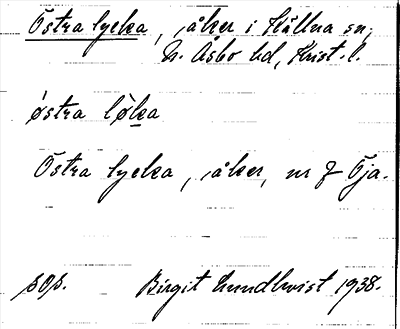 Östra lycka, åker i Källna sn,
N. Åsbo hd, Krist. l.
östra løka
Östra lycka, åker, nr 7 Öja.
pop. Birgit Lundkvist 1938.